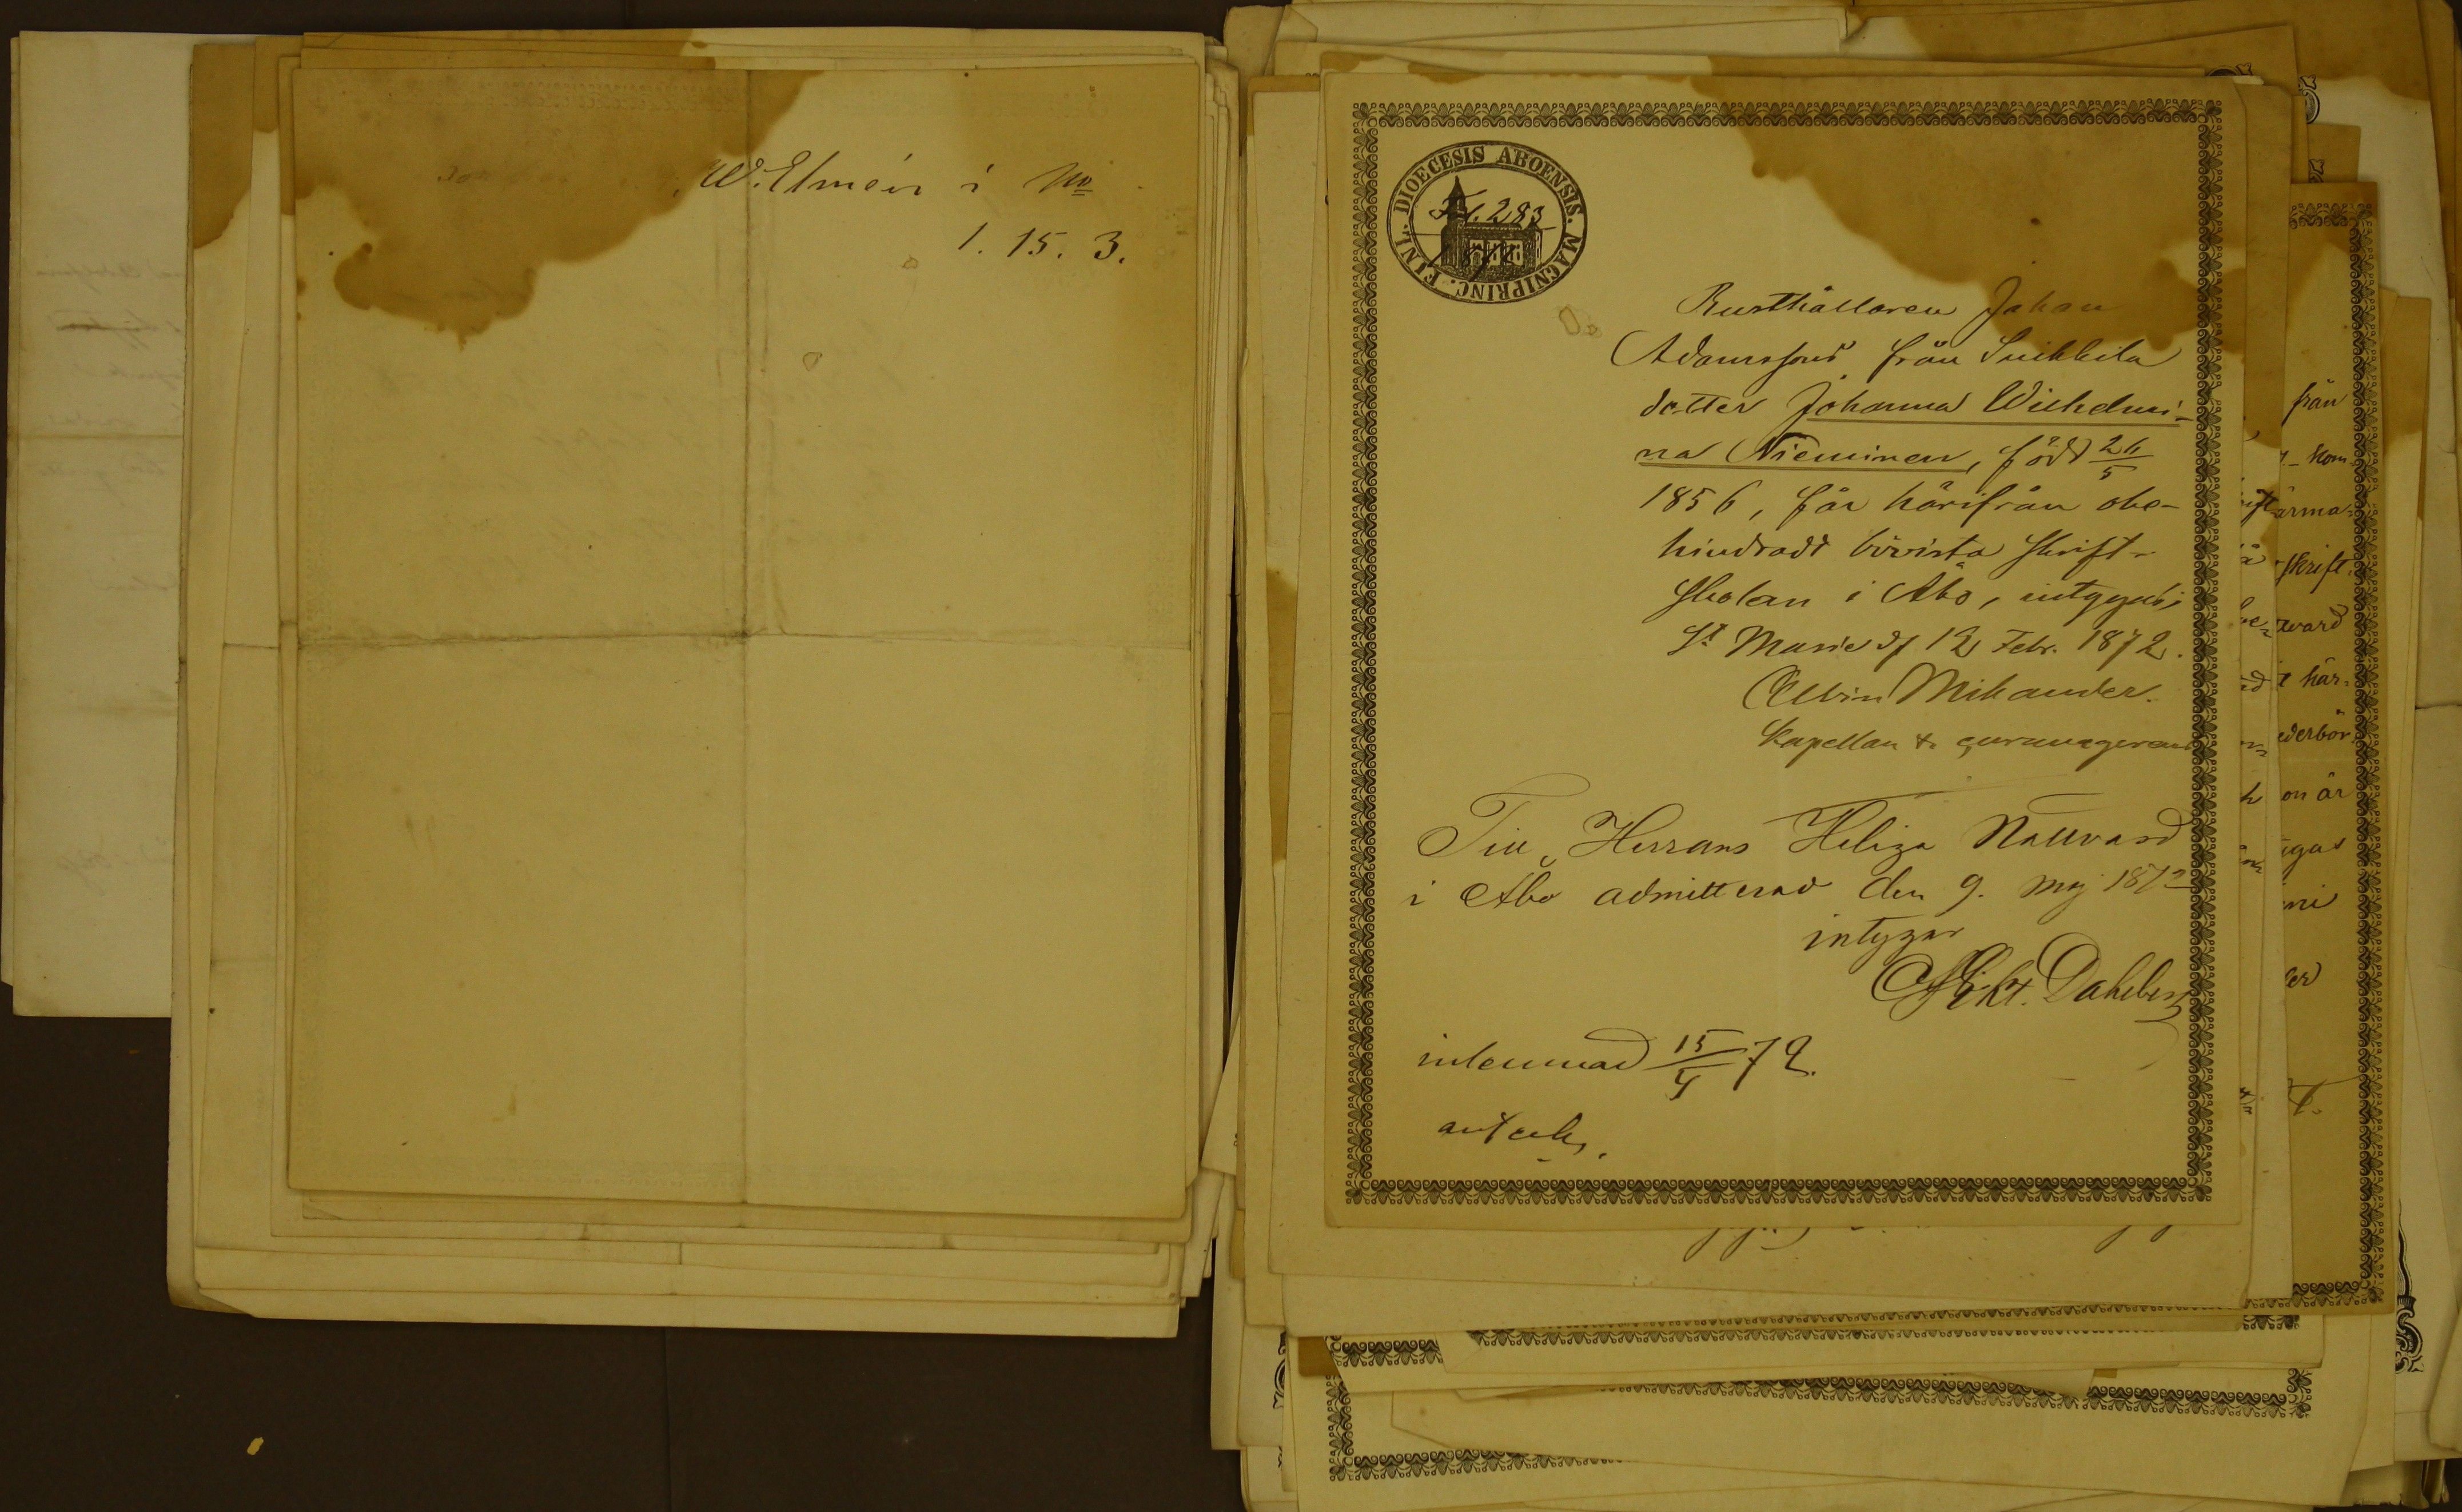 W. Elmén i No
1. 15. 3.
DIOECESIS ABOENSIS. MAGNIPRINC. FINL.
283
Rusthållaren Johan
Adamssons från Suikkila
dotter Johanna Wilhelmi-
na Nieminen, född 26/5
1856, får härifrån obe-
hindradt bivista skrift-
skolan i Åbo, intygas;
St Marie df 12 Febr. 1872.
Mikander.
Kapellan
Till Herrans Heliga Nattvard
i Åbo admitterad den 9. Maj 1872
intygar
Dahlberg
inlemnad 15/4 72.
från
kom-
ärma-
skrift-
tvard
t här-
ederbör-
on är